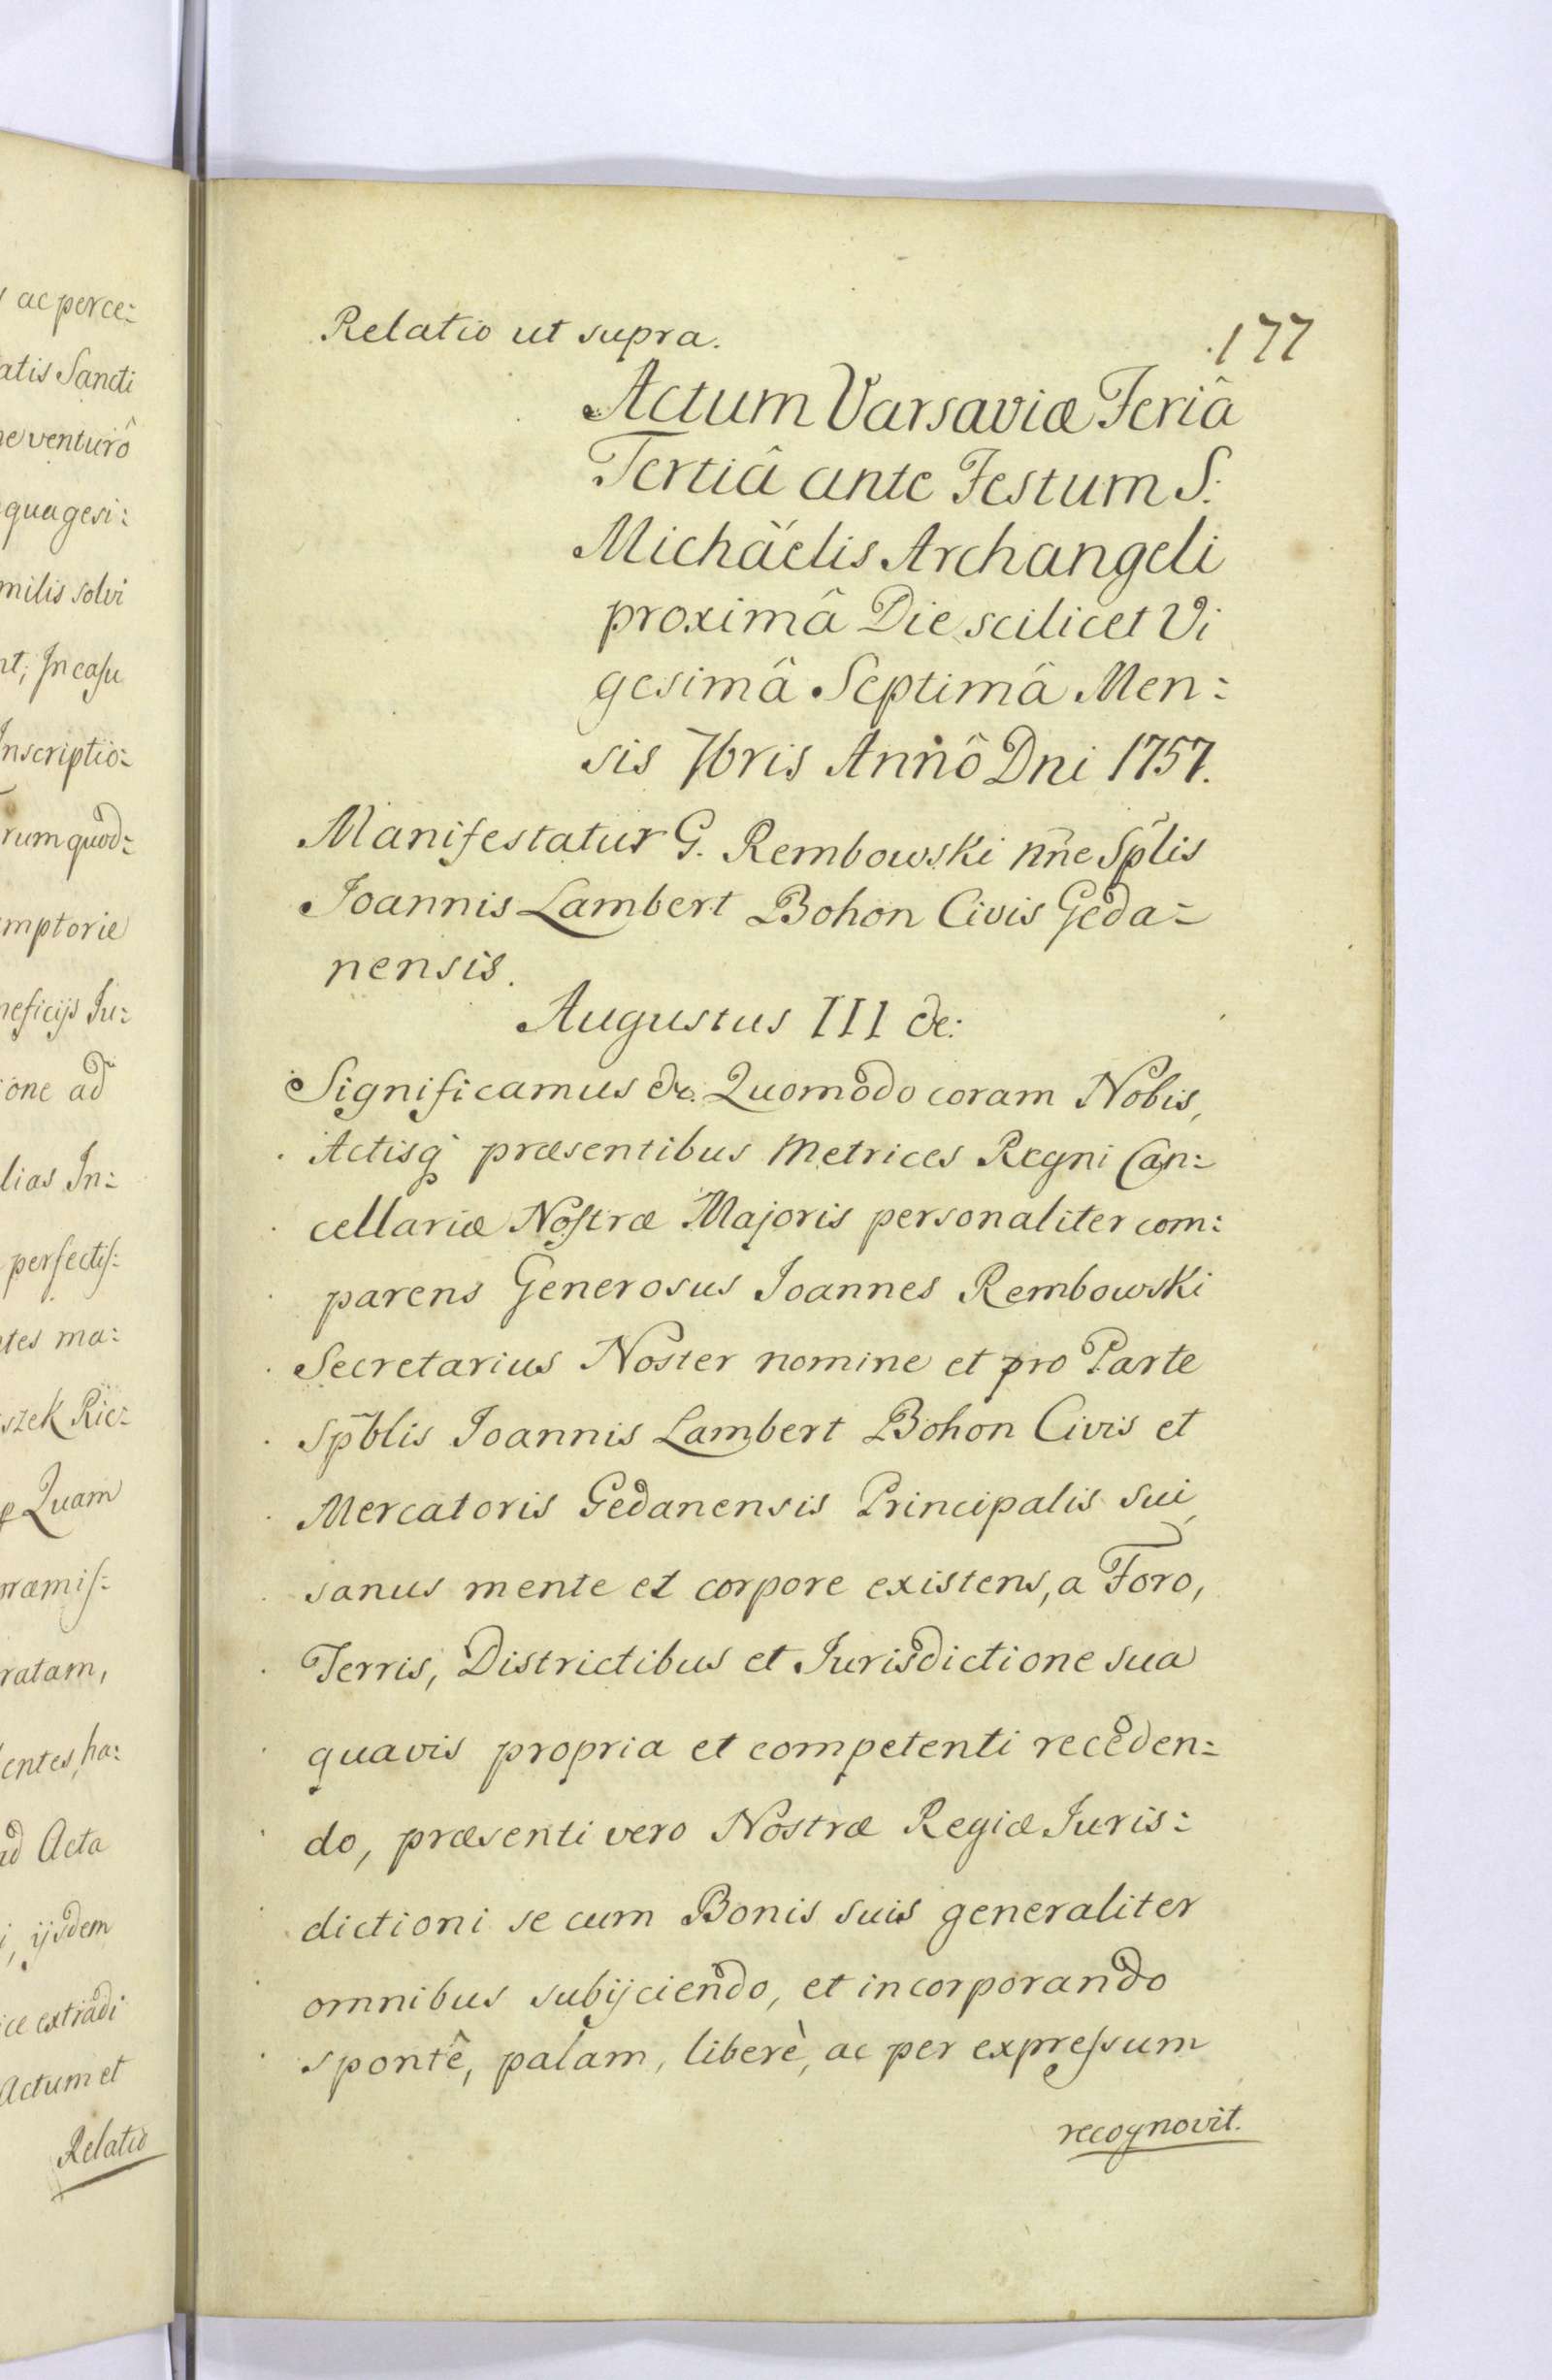 ac perce:
atis Sancti
e venturô
quagesi:
milis solvi
nt, In casu
Inscriptio:
rum quod:
mptorie
neficijs Iu:
ione ad
lias In:
perfectis:
ntes ma:
szek Ric:
Quam
præmis:
ratam,
entes, ha:
ad Acta
i, ijsdem
ce extradi
Actum et
Relatio
Relatio ut supra.
177
Actum Varsaviæ Feriâ
Tertiâ ante Festum S.
Michäelis Archangeli
proximâ Die scilicet Vi
gesimâ Septimâ Men:
sis 7bris Annô Dni 1757.
Manifestatur G. Rembowski nñe Sp̃lis
Joannis Lambert Bohon Civis Geda:
nensis.
Augustus III &c:
Significamus &c. Quomodo coram Nobis,
Actisq̃ præsentibus Metrices Regni Can:
cellariæ Nostræ Majoris personaliter com:
parens Generosus Joannes Rembowski
Secretarius Noster nomine et pro Parte
Sp̃blis Joannis Lambert Bohon Civis et
Mercatoris Gedanensis Principalis sui,
sanus mente et corpore existens, a Foro,
Terris, Districtibus et Jurisdictione sua
quavis propria et competenti receden:
do, præsenti vero Nostræ Regiæ Juris:
dictioni se cum Bonis suis generaliter
omnibus subijciendo, et incorporando
spontê, palam, liberè, ac per expressum
recognovit.